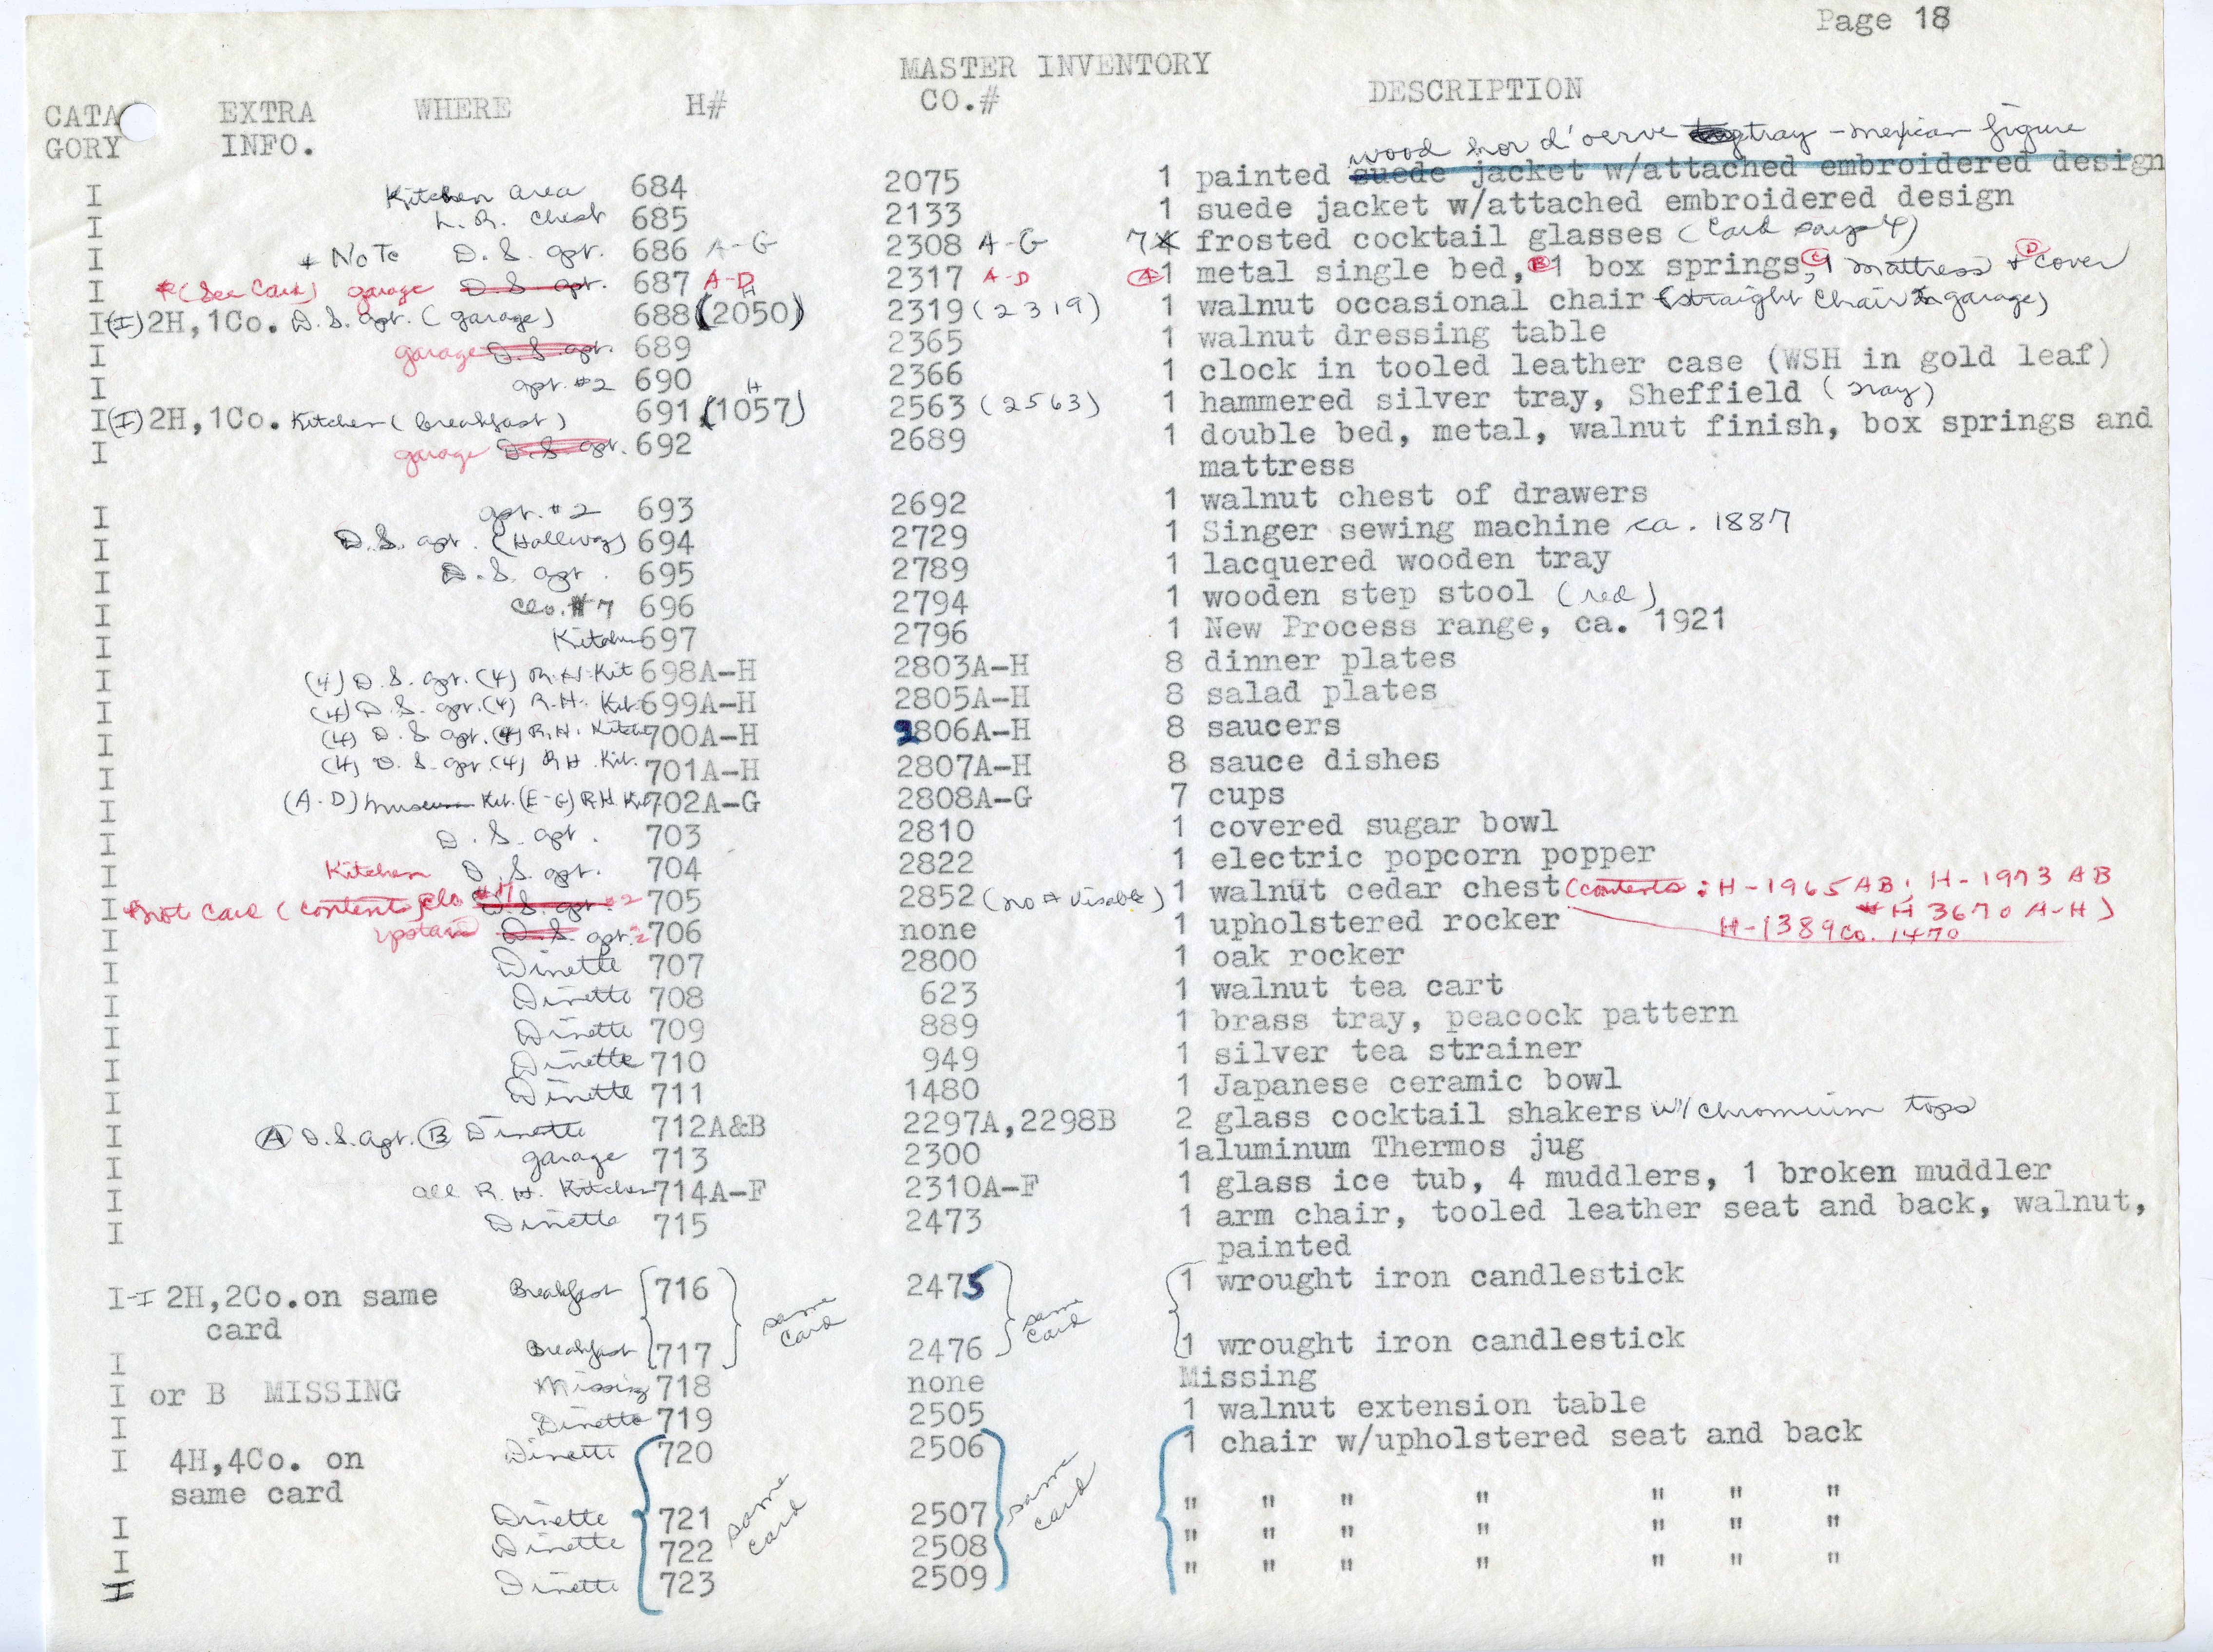 Page 18
MASTER INVENTORY
CATA EXTRA WHERE H# CO.# DESCRIPTION
GORY INFO.
wood hor d'oerve tray - mexican figure
I Kitchen area 684 2075 1 painted suede jacket w/attached embroidered design
I L.R. chest 685 2133 1 suede jacket w/attached embroidered design
I * NoTe D.S. apt. 686 A-G 2308 A-G 7 frosted cocktail glasses (Card says 4)
I *(See Card) garage D.S. apt. 687 A-D 2317 A-D A 1 metal single bed, B 1 box springs, C 1 mattress + D cover
I (I) 2H,1Co. D.S. apt. (garage) 688 (H 2050) 2319 (2319) 1 walnut occasional chair (straight chair in garage)
I garage D.S. apt. 689 2365 1 walnut dressing table
I apt. #2 690 2366 1 clock in tooled leather case (WSH in gold leaf)
I (I) 2H,1Co. Kitchen (breakfast) 691 (H 1057) 2563 (2563) 1 hammered silver tray, Sheffield (tray)
I garage D.S. apt. 692 2689 1 double bed, metal, walnut finish, box springs and
mattress
I apt. #2 693 2692 1 walnut chest of drawers
I D.S. apt. (Hallway) 694 2729 1 Singer sewing machine ca. 1887
I D.S. apt. 695 2789 1 lacquered wooden tray
I clo. #7 696 2794 1 wooden step stool (red)
I Kitchen 697 2796 1 New Process range, ca. 1921
I (4) D.S. apt. (4) R.H. Kit 698A-H 2803A-H 8 dinner plates
I (4) D.S. apt. (4) R.H. Kit. 699A-H 2805A-H 8 salad plates
I (4) D.S. apt. (4) R.H. Kitchen 700A-H 2806A-H 8 saucers
I (4) D.S. apt. (4) RH. Kit. 701A-H 2807A-H 8 sauce dishes
I (A-D) museum Kit. (E-G) R.H. Kit 702A-G 2808A-G 7 cups
I D.S. apt. 703 2810 1 covered sugar bowl
I Kitchen D.S. apt. 704 2822 1 electric popcorn popper
I card (contents) clo #7 D.S. apt. #2 705 2852 (no # visable) 1 walnut cedar chest (contents: H-1965 AB; H-1973 AB
# H 3670 A-H)
I upstairs D.S. apt. 2 706 none 1 upholstered rocker H-1389 Co. 1470
I Dinette 707 2800 1 oak rocker
I Dinette 708 623 1 walnut tea cart
I Dinette 709 889 1 brass tray, peacock pattern
I Dinette 710 949 1 silver tea strainer
I Dinette 711 1480 1 Japanese ceramic bowl
I A D.S. apt. B Dinette 712A&B 2297A,2298B 2 glass cocktail shakers w/ chromium tops
I garage 713 2300 1aluminum Thermos jug
I all R.H. Kitchen 714A-F 2310A-F 1 glass ice tub, 4 muddlers, 1 broken muddler
I Dinette 715 2473 1 arm chair, tooled leather seat and back, walnut,
painted
I-I 2H,2Co.on same Breakfast 716 same card 2475 same card 1 wrought iron candlestick
card
I Breakfast 717 2476 1 wrought iron candlestick
I or B MISSING Missing 718 none Missing
I Dinette 719 2505 1 walnut extension table
I 4H,4Co. on Dinette 720 2506 1 chair w/upholstered seat and back
same card
I Dinette 721 same card 2507 same card " " " " " " "
I Dinette 722 2508 " " " " " " "
I Dinette 723 2509 " " " " " " "